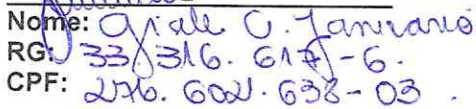 Nome: Gisele C. Januario
RG: 33 316. 617-6.
CPF: 276. 602. 638-03.